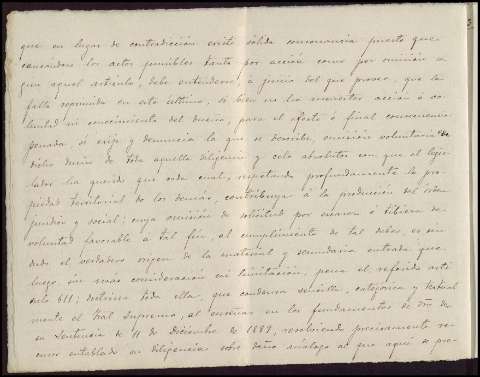 que en lugar de contradicción existe sólida consonancia puesto que
causándose los actos punibles tanto por acción como por omisión se
gun aquel artículo, debe entenderse á juicio del que provee, que la
falta reprimida en este último, si bien no los acción ó vo
luntad ni conocimiento del dueño, para el efecto ó final consecuencia
penada, si exije y denuncia la que se describe, omisión voluntaria de
dicho dueño de toda aquella diligencia y celo absolutos con que el legis
lador ha querido que cada cual, respetando profundamente la pro
piedad territorial de los demás, contribuya á la producción del órden
jurídico y social; cuya omisión de solicitud por ó tibieza de
voluntad favorable á tal fin, al cumplimiento de tal deber, es sin
duda el verdadero origen de la material y secundaria entrada que
luego, sin más consideración ni limitación, pena el referido artí
culo 611; doctrina toda ella, que condensa sencilla, categórica y textual
mente el Tral Supremo, al consignar en los fundamentos de dro de
su Sentencia de 11 de Diciembre de 1882, resolviendo precisamente re
curso entablado en diligencias sobre daño análogo al que aquí se pro